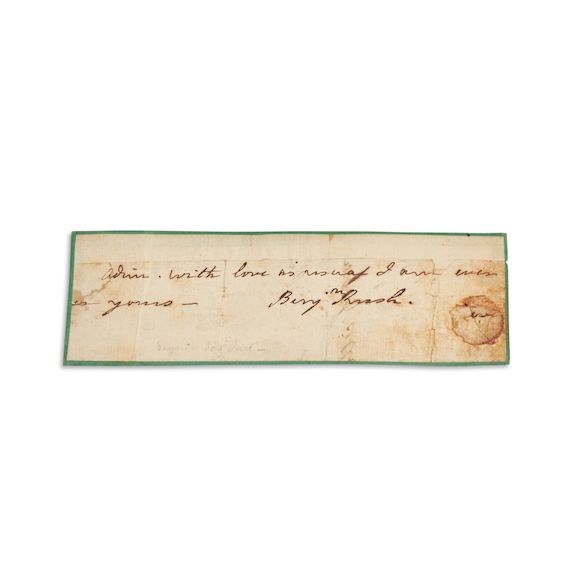 Adieu. with love as usual I am ever
yours — Benjn Rush.